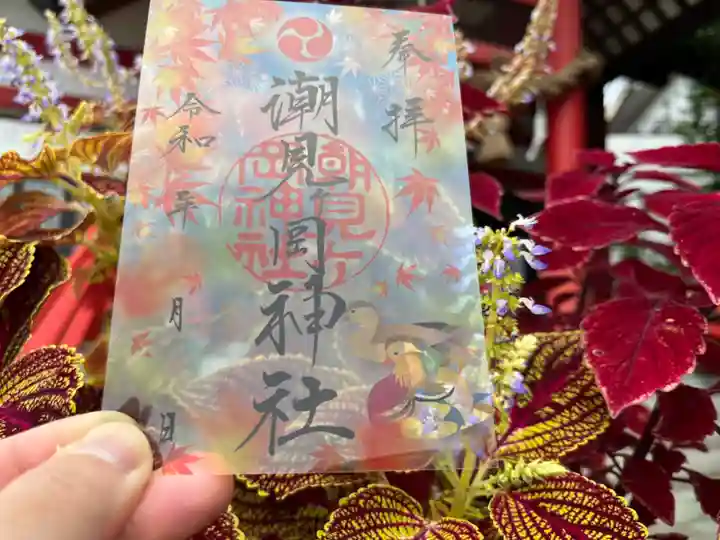 奉拝
潮見岡神社
潮見ヶ岡神社
令和 年 月 日